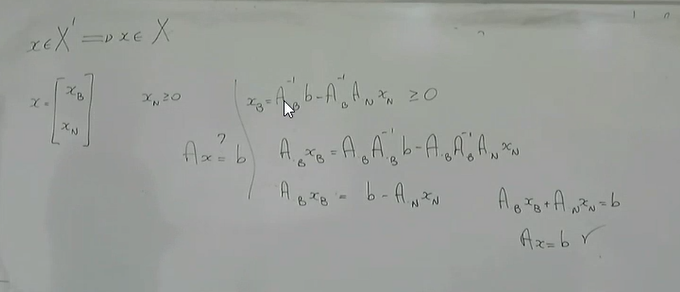 x ∈ X' ⟹ x ∈ X
x = [x_B x_N] x_N ≥ 0
Ax =? b
x_B = A_B^{-1} b - A_B^{-1} A_N x_N ≥ 0
A_B x_B = A_B A_B^{-1} b - A_B A_B^{-1} A_N x_N
A_B x_B = b - A_N x_N
A_B x_B + A_N x_N = b
Ax = b ✓